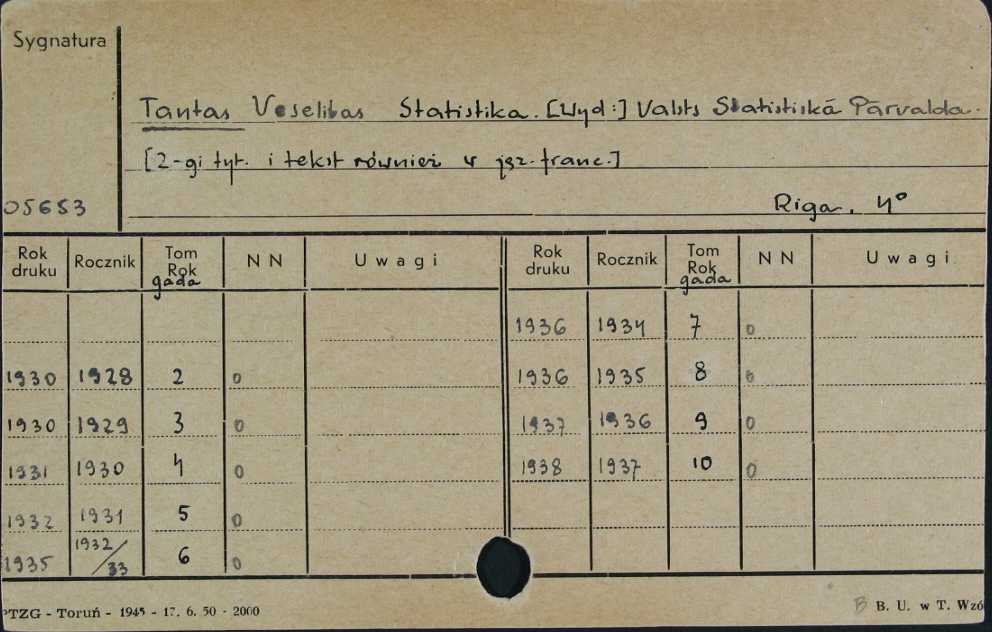 Sygnatura
Tantas Veselibas Statistika. [Wyd:] Valsts Statistiskā Pārvalda.
[2-gi tyt. i tekst również w jęz. franc.]
05653
Riga, 4°
Rok druku Rocznik Tom Rok gada NN Uwagi Rok druku Rocznik Tom Rok gada NN Uwagi
1936 1934 7 0
1930 1928 2 0 1936 1935 8 0
1930 1929 3 0 1937 1936 9 0
1931 1930 4 0 1938 1937 10 0
1932 1931 5 0
1935 1932/33 6 0
PTZG - Toruń - 1945 - 17. 6. 50 - 2000 B B. U. w T. Wzó